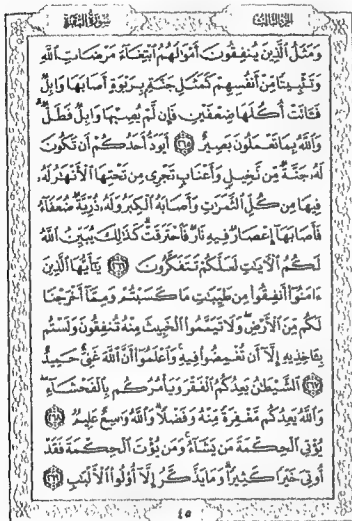 الجزء الثالث
سورة البقرة
وَمَثَلُ الَّذِينَ يُنفِقُونَ أَمْوَالَهُمُ ابْتِغَاءَ مَرْضَاتِ اللَّهِ
وَتَثْبِيتًا مِّنْ أَنفُسِهِمْ كَمَثَلِ جَنَّةٍ بِرَبْوَةٍ أَصَابَهَا وَابِلٌ
فَـَٔاتَتْ أُكُلَهَا ضِعْفَيْنِ فَإِن لَّمْ يُصِبْهَا وَابِلٌ فَطَلٌّ
وَاللَّهُ بِمَا تَعْمَلُونَ بَصِيرٌ ٢٦٥ أَيَوَدُّ أَحَدُكُمْ أَن تَكُونَ
لَهُ جَنَّةٌ مِّن نَّخِيلٍ وَأَعْنَابٍ تَجْرِى مِن تَحْتِهَا الْأَنْهَٰرُ لَهُ
فِيهَا مِن كُلِّ الثَّمَرَٰتِ وَأَصَابَهُ الْكِبَرُ وَلَهُ ذُرِّيَّةٌ ضُعَفَاءُ
فَأَصَابَهَا إِعْصَارٌ فِيهِ نَارٌ فَاحْتَرَقَتْ كَذَٰلِكَ يُبَيِّنُ اللَّهُ
لَكُمُ الْآيَٰتِ لَعَلَّكُمْ تَتَفَكَّرُونَ ٢٦٦ يَٰٓأَيُّهَا الَّذِينَ
ءَامَنُوٓا أَنفِقُوا مِن طَيِّبَٰتِ مَا كَسَبْتُمْ وَمِمَّا أَخْرَجْنَا
لَكُم مِّنَ الْأَرْضِ وَلَا تَيَمَّمُوا الْخَبِيثَ مِنْهُ تُنفِقُونَ وَلَسْتُم
بِـَٔاخِذِيهِ إِلَّا أَن تُغْمِضُوا فِيهِ وَاعْلَمُوا أَنَّ اللَّهَ غَنِىٌّ حَمِيدٌ
٢٦٧ الشَّيْطَٰنُ يَعِدُكُمُ الْفَقْرَ وَيَأْمُرُكُم بِالْفَحْشَاءِ
وَاللَّهُ يَعِدُكُم مَّغْفِرَةً مِّنْهُ وَفَضْلًا وَاللَّهُ وَٰسِعٌ عَلِيمٌ ٢٦٨
يُؤْتِى الْحِكْمَةَ مَن يَشَاءُ وَمَن يُؤْتَ الْحِكْمَةَ فَقَدْ
أُوتِىَ خَيْرًا كَثِيرًا وَمَا يَذَّكَّرُ إِلَّا أُولُوا الْأَلْبَٰبِ ٢٦٩
٤٥